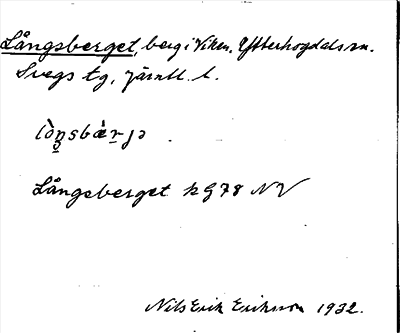 Långsberget, berg i Viken. Ytterhogdals sn.
Svegs tg, Jämtl. l.
lòŋsbæ̀rjə .
Långsberget kg 78 NV
Nils Erik Eriksson 1932.